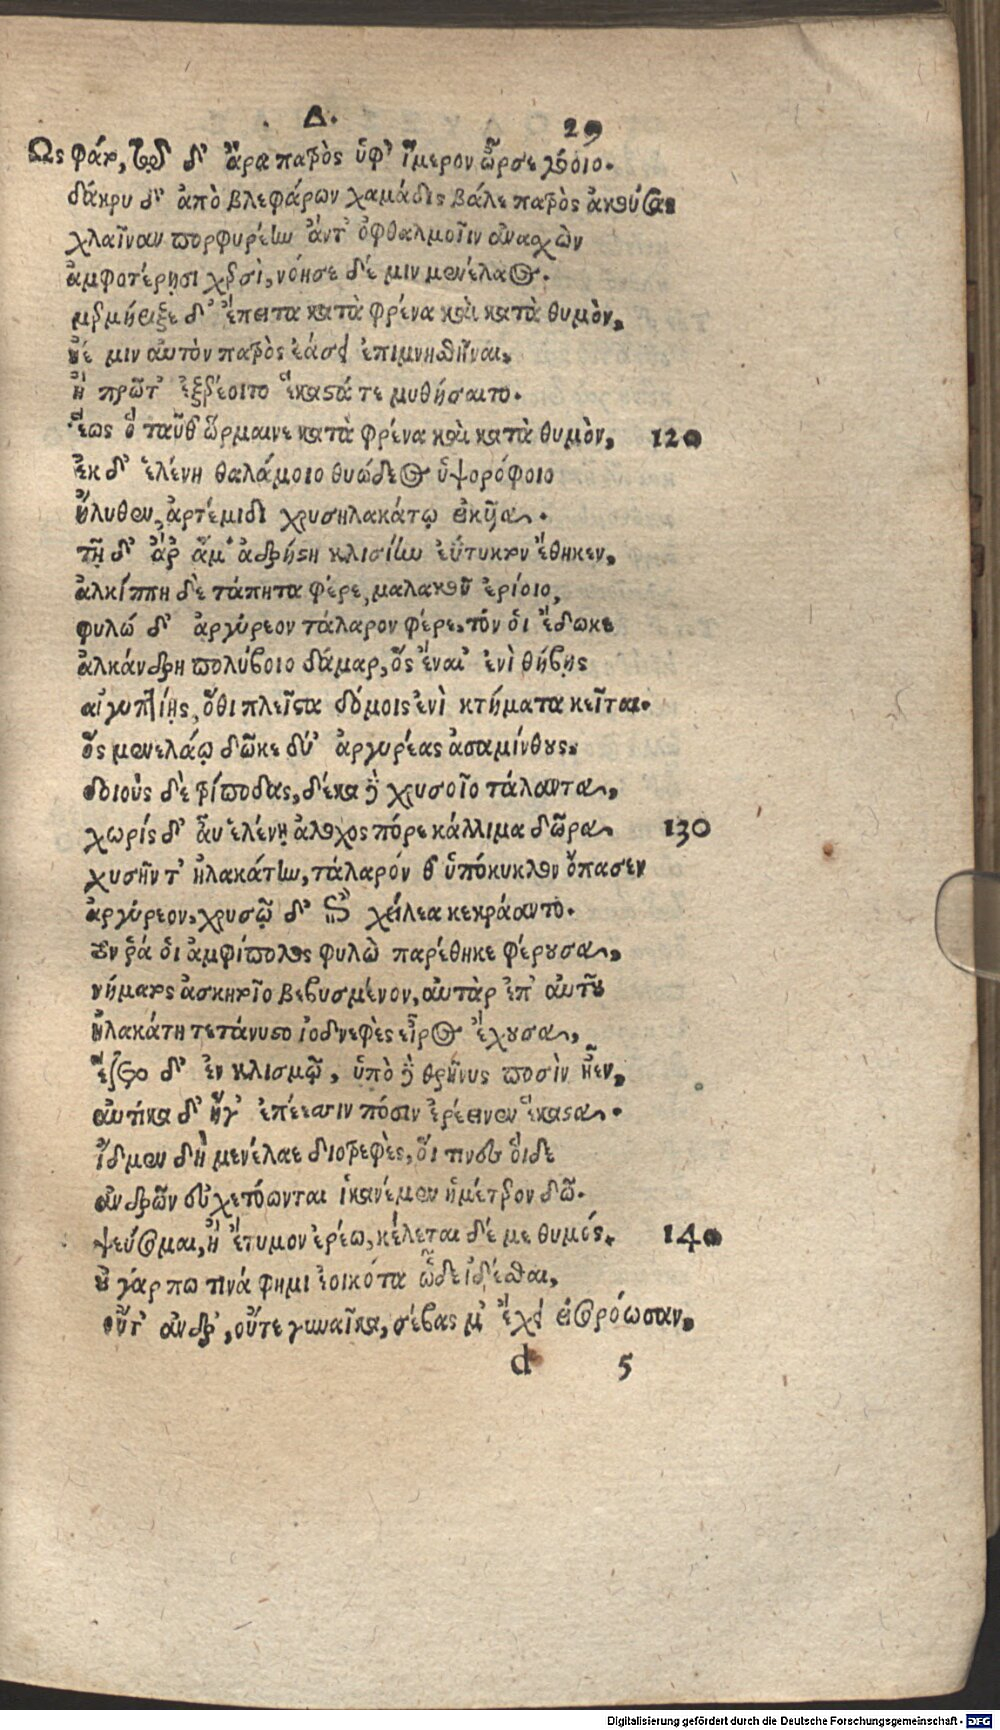 Δ. 29
Ως φάτο, τῷ δ' ἄρα πατρὸς ὑφ' ἵμερον ὦρσε γόοιο.
δάκρυ δ' ἀπὸ βλεφάρων χαμάδις βάλε πατρὸς ἀκούσας
χλαῖναν πορφυρέην ἄντ' ὀφθαλμοῖιν ἀνασχὼν
ἀμφοτέρῃσι χερσὶ, νόησε δέ μιν μενέλαος.
μερμήριξε δ' ἔπειτα κατὰ φρένα καὶ κατὰ θυμὸν,
ἠέ μιν αὐτὸν πατρὸς ἐάσει ἐπιμνησθῆναι,
ἢ πρῶτ' ἐξερέοιτο ἕκαστά τε μυθήσαιτο.
ἕως ὃ ταῦθ' ὥρμαινε κατὰ φρένα καὶ κατὰ θυμὸν, 120
ἐκ δ' ἑλένη θαλάμοιο θυώδεος ὑψορόφοιο
ἤλυθεν, ἀρτέμιδι χρυσηλακάτῳ εἰκυῖα.
τῇ δ' ἄρ' ἅμ' ἀδρήστη κλισίην εὔτυκτον ἔθηκεν,
ἀλκίππη δὲ τάπητα φέρε, μαλακοῦ ἐρίοιο,
φυλώ δ' ἀργύρεον τάλαρον φέρε, τόν οἱ ἔδωκε
ἀλκάνδρη πολύβοιο δάμαρ, ὃς ἔναι' ἐνὶ θήβῃς
αἰγυπτίης, ὅθι πλεῖστα δόμοις ἐνὶ κτήματα κεῖται.
ὃς μενελάῳ δῶκε δύ' ἀργυρέας ἀσαμίνθους,
δοιοὺς δὲ τρίποδας, δέκα δὲ χρυσοῖο τάλαντα,
χωρίς δ' αὖ ἑλένῃ ἄλοχος πόρε κάλλιμα δῶρα 130
χυσῆν τ' ἠλακάτην, τάλαρόν θ' ὑπόκυκλον ὄπασεν
ἀργύρεον, χρυσῷ δ' ἐπὶ χείλεα κεκράαντο.
τόν ῥά οἱ ἀμφίπολος φυλὼ παρέθηκε φέρουσα,
νήματος ἀσκητοῖο βεβυσμένον, αὐτὰρ ἐπ' αὐτῷ
ἠλακάτη τετάνυστο ἰοδνεφὲς εἶρος ἔχουσα,
ἕζετο δ' ἐν κλισμῷ, ὑπὸ δὲ θρῆνυς ποσὶν ἦεν,
αὐτίκα δ' ἥγ' ἐπέεσσιν πόσιν ἐρέεινεν ἕκαστα.
ἴδμεν δὴ μενέλαε διοτρεφὲς, οἵ τινες οἵδε
ἀνδρῶν εὐχετόωνται ἱκανέμεν ἡμέτερον δῶ.
ψεύσομαι, ἢ ἔτυμον ἐρέω, κέλεται δέ με θυμός. 140
οὐ γάρ πω τινά φημι ἐοικότα ὧδε ἰδέσθαι,
οὔτ' ἄνδρ', οὔτε γυναῖκα, σέβας μ' ἔχει εἰσορόωσαν,
d 5
Digitalisierung gefördert durch die Deutsche Forschungsgemeinschaft - DFG